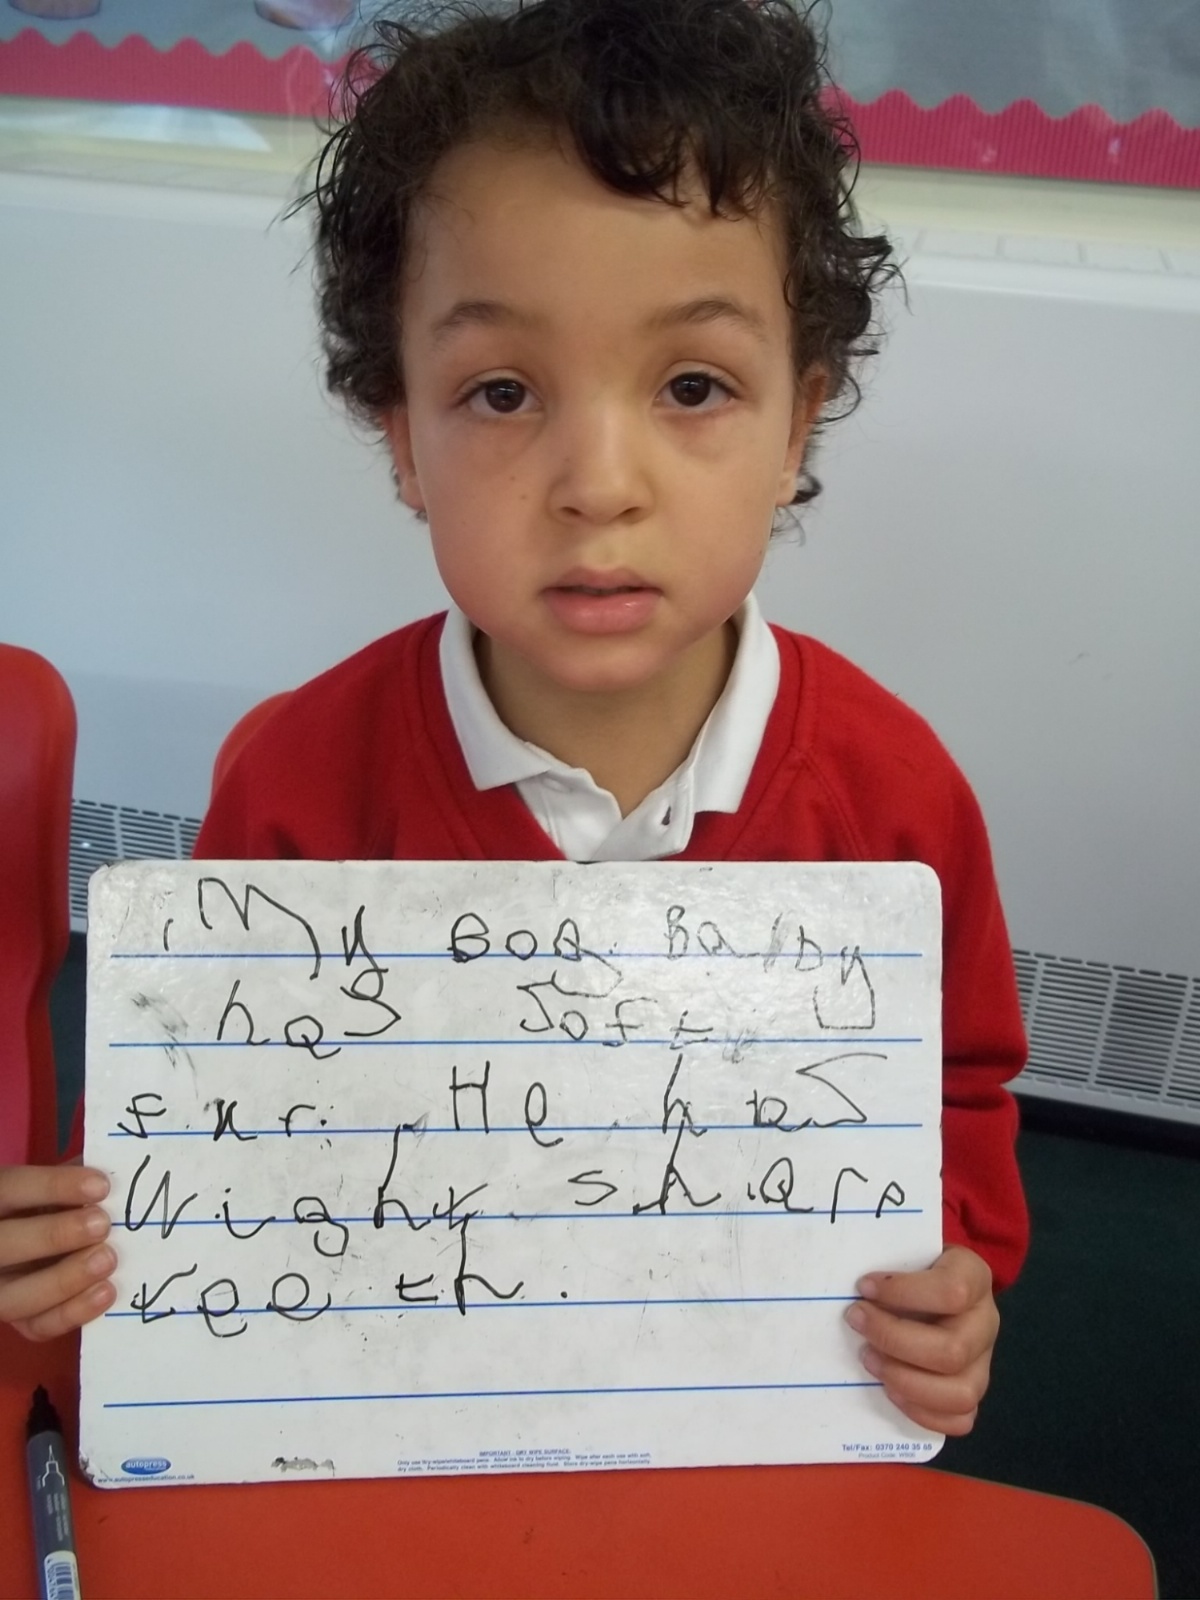 My Bog Baby
has soft
fur. He has
Wight sharp
teeth.
autopress
www.autopresseducation.co.uk
IMPORTANT: DRY WIPE SURFACE:
Tel/Fax: 0370 240 35 65